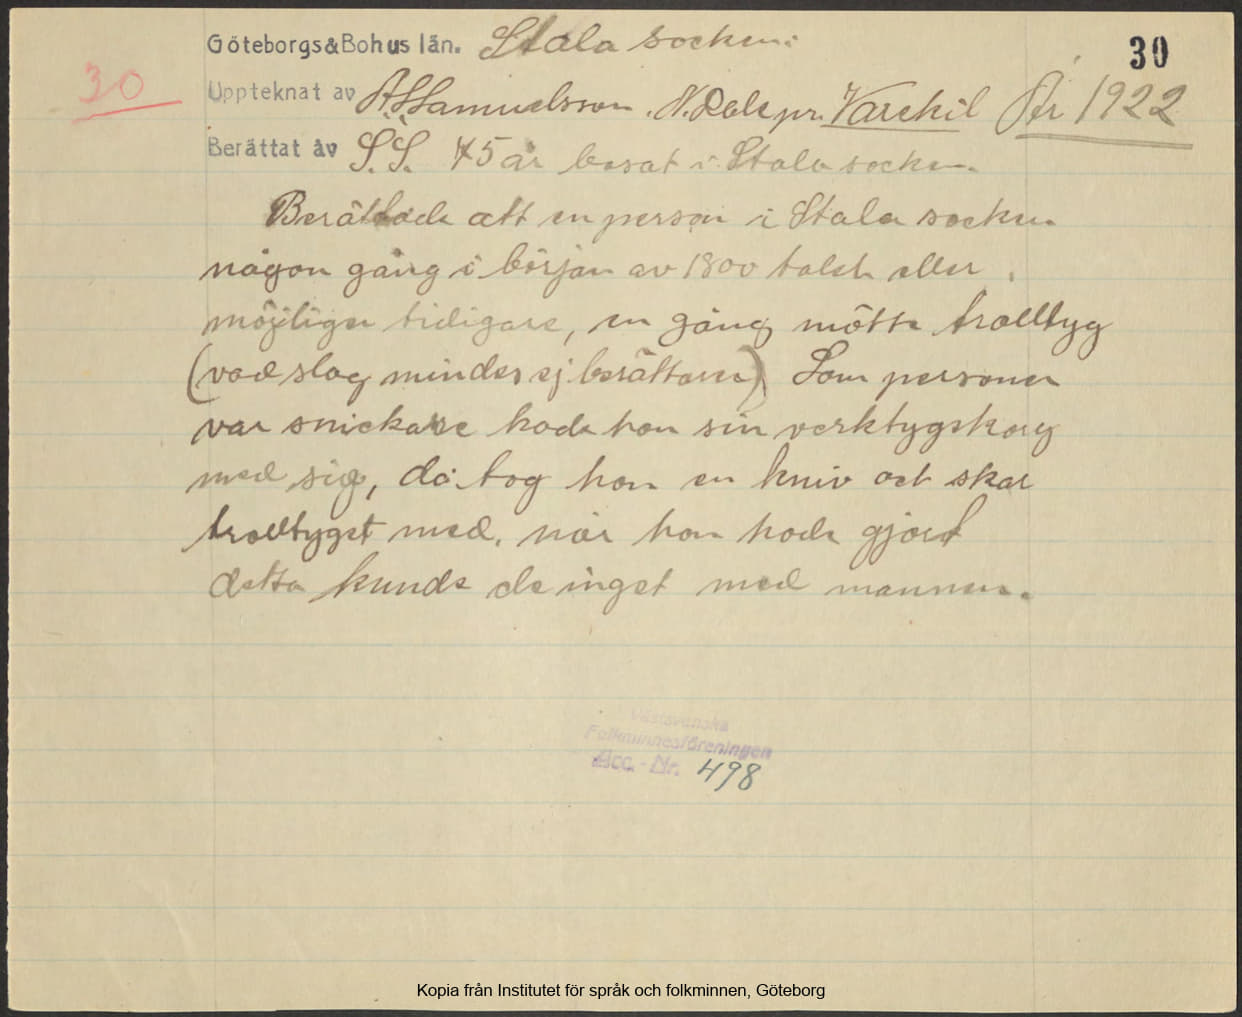 Göteborgs&Bohus län. Stala socken:
30
30
Uppteknat av A.S. Samuelsson. N. Röle pr. Varekil År 1922
Berättat av S.S. 45 år bosat i Stala socken.
Berättade att en person i Stala socken
någon gång i början av 1800 talet eller
möjligen tidigare, en gång mötte trolltyg
(vad slag mindes ej berättaren) Som personen
var snickare hade han sin verktygskorg
med sig, då tog han en kniv och skar
trolltyget med, när han hade gjort
detta kunde de inget med mannen.
Västsvenska
Folkminnesföreningen
Acc.-Nr. 498
Kopia från Institutet för språk och folkminnen, Göteborg